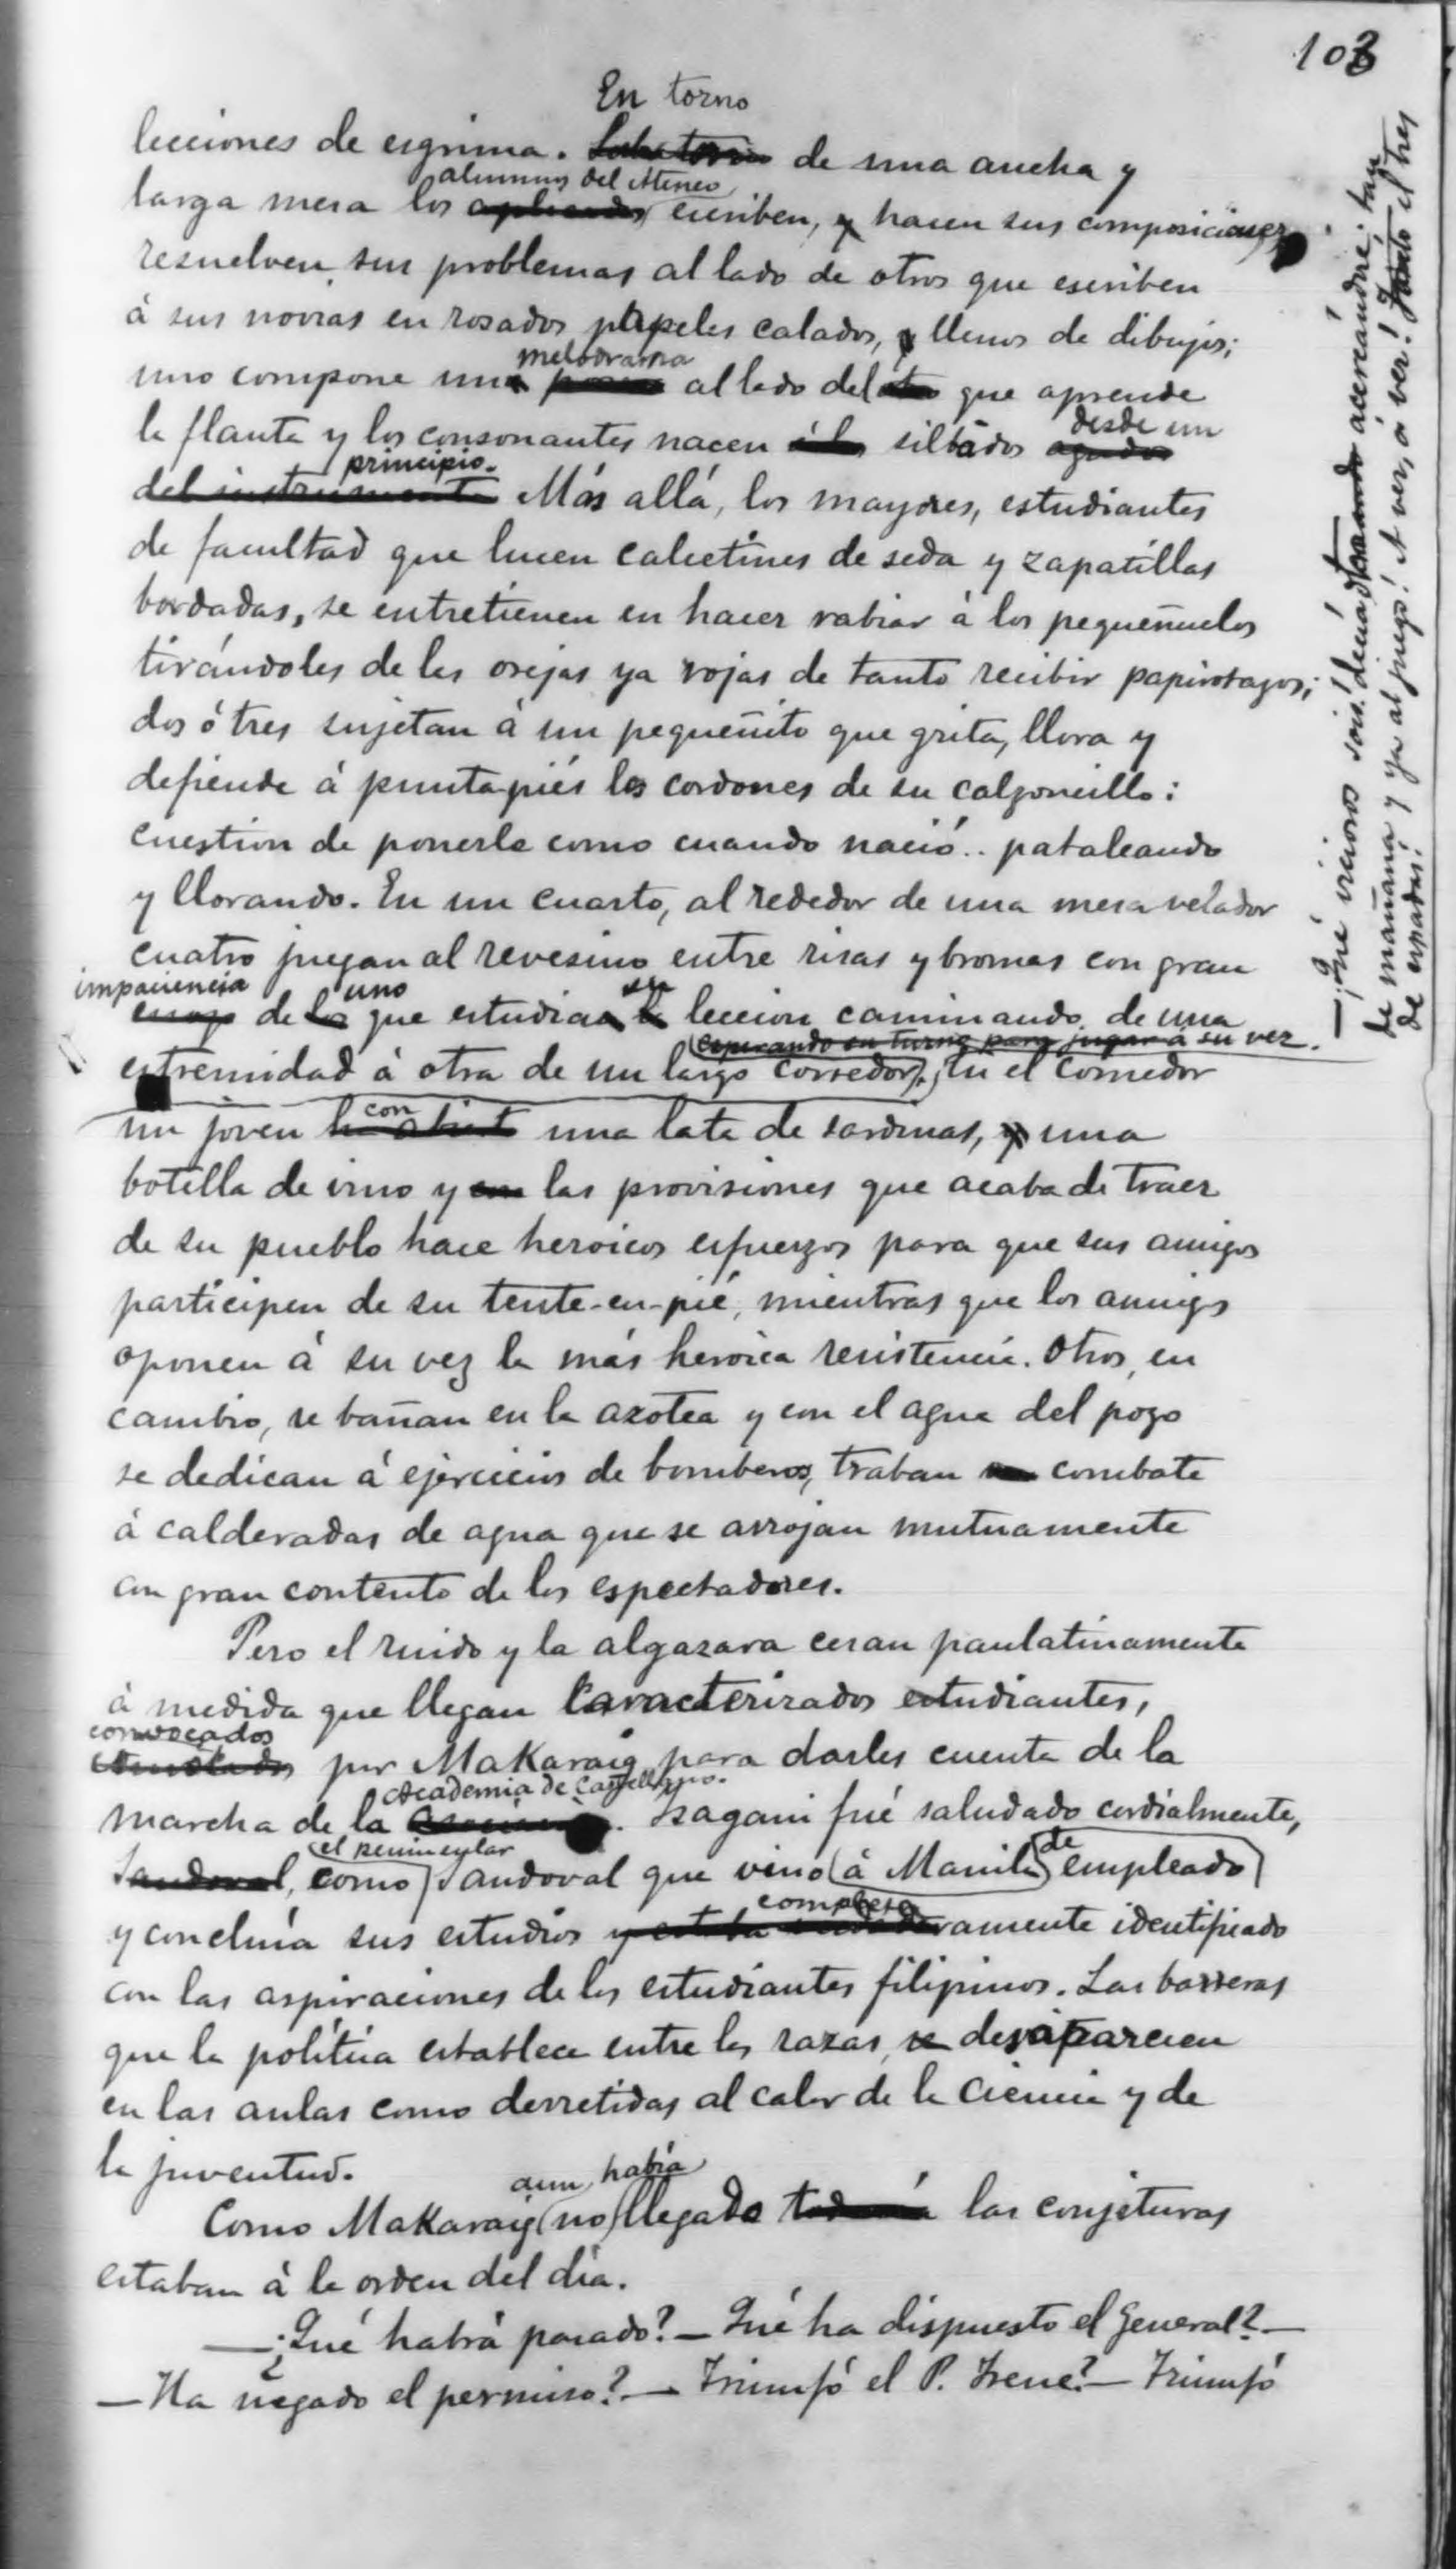 103
En torno
lecciones de esgrima. de una ancha y
alumnos del Ateneo
larga mesa los escriben, y hacen sus composiciones,
resuelven sus problemas al lado de otros que escriben
á sus novias en rosados papeles calados, y llenos de dibujos;
melodrama
uno compone un al lado del que aprende
desde un
la flauta y los consonantes nacen silbados
principio.
del instrumento Más allá, los mayores, estudiantes
de facultad que lucen calcetines de seda y zapatillas
bordadas, se entretienen en hacer rabiar á los pequeñuelos
tirándoles de las orejas ya rojas de tanto recibir papirotazos;
dos ó tres sujetan á un pequeñito que grita, llora y
defiende á puntapiés los cordones de su calzoncillo:
cuestion de ponerle como cuando nació.. pataleando
y llorando. En un cuarto, al rededor de una mesa velador
cuatro juegan al revesino entre risas y bromas con gran
impaciencia uno su
de que estudia leccion caminando de una
esperando su turno para jugar á su vez.
estremidad á otra de un largo corredor. En el comedor
con
un joven una lata de sardinas, y una
botella de vino y con las provisiones que acaba de traer
de su pueblo hace heroicos esfuerzos para que sus amigos
participen de su tente-en-pié, mientras que los amigos
oponen á su vez la más heroica resistencia. Otros, en
cambio, se bañan en la azotea y con el agua del pozo
se dedican á ejercicios de bomberos, traban combate
á calderadas de agua que se arrojan mutuamente
con gran contento de los espectadores.
Pero el ruido y la algazara cesan paulatinamente
á medida que llegan caracterizados estudiantes,
convocados
por Makaraig para darles cuenta de la
Academia de Castellano.
marcha de la . Isagani fué saludado cordialmente,
el peninsular de
Sandoval, como Sandoval que vino á Manila empleado
completa
y concluía sus estudios y estaba verdaderamente identificado
con las aspiraciones de los estudiantes filipinos. Las barreras
que la política establece entre las razas, se desaparecen
en las aulas como derretidas al calor de la ciencia y de
la juventud.
aun había
Como Makaraig no llegado todavía las conjeturas
estaban á la orden del día.
—¿Qué habrá pasado?—Qué ha dispuesto el General?—
—Ha negado el permiso?—Triunfó el P. Irene?—Triunfó
—¡Qué viciosos sois! decía acercándose. tan
de mañana y ya al juego! A ver, á ver! Tonto el tres
de espadas!